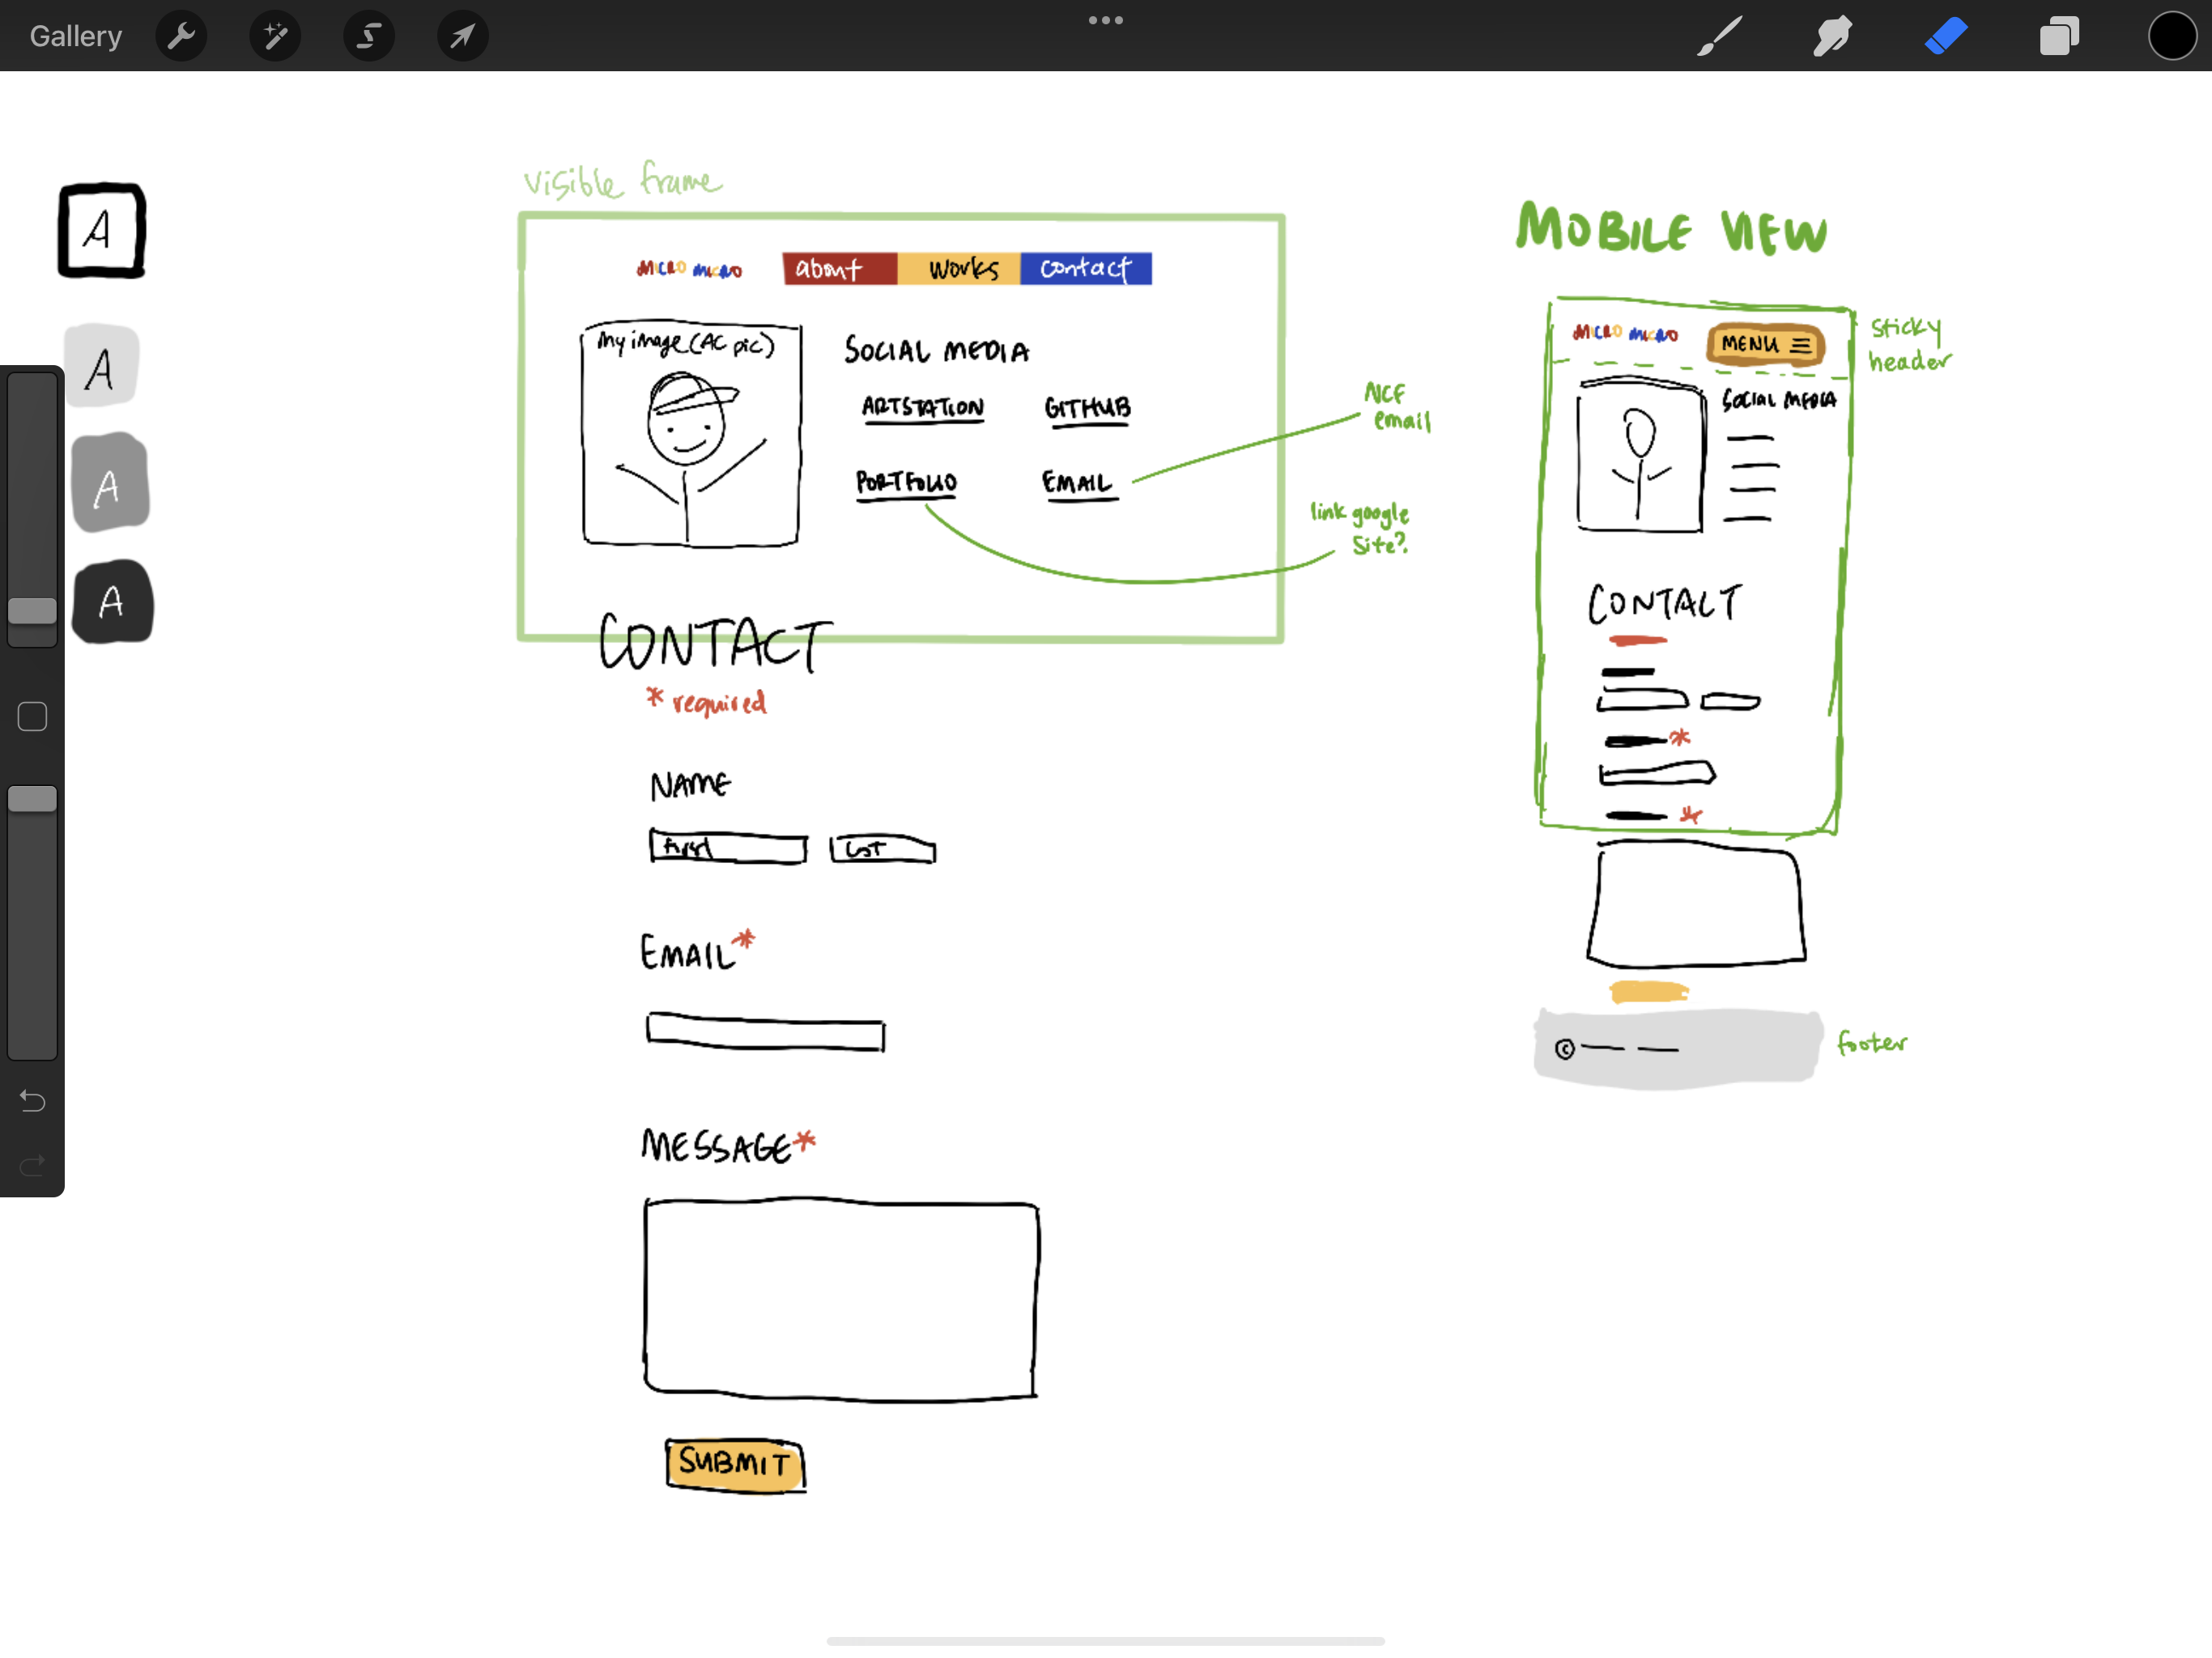 Gallery
A
A
A
A
visible frame
MICRO MICRO
about
works
contact
My image (AC pic)
SOCIAL MEDIA
ARTSTATION
GITHUB
PORTFOLIO
EMAIL
NCF
email
link google
site?
CONTACT
* required
NAME
First
Last
EMAIL*
MESSAGE*
SUBMIT
MOBILE VIEW
MICRO MICRO
MENU
sticky
header
SOCIAL MEDIA
CONTACT
*
*
©
footer